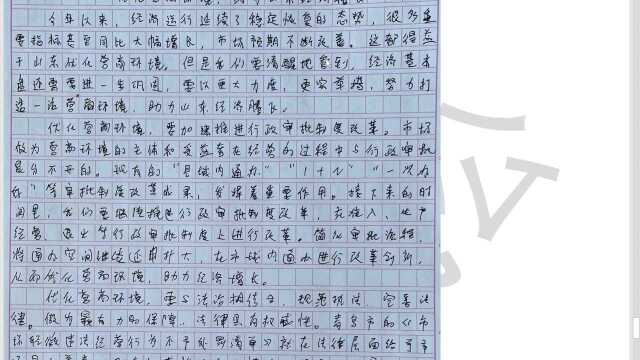 今年以来，经济运行延续了稳定恢复的态势，很多重
要指标甚至同比大幅增长，市场预期不断改善。这都得益
于山东优化营商环境。但是我们要清醒地看到，经济基本
盘还需要进一步巩固，要以更大力度，更实举措，努力打
造一流营商环境，助力山东经济腾飞。
优化营商环境，要加速推进行政审批制度改革。市场
做为营商环境的主体和受益者在经营的过程中与行政审批
是分不开的。现有的“县域内通办”“1+N”“一次办
好”等审批制度改革成果，发挥着重要作用。接下来的时
间里，我们要继续推进行政审批制度改革，在准入、生产
经营、退出等行政审批制度上进行改革。简化审批流程，
将通办空间进一步扩大，在市域内通办进行改革创新，
从而优化营商环境，助力经济增长。
优化营商环境，要与法治相结合，规范执法，完善法
律。做为最有力的保障，法律具有权威性。青岛市的《市
场轻微违法经营行为不予处罚清单》就在法律层面给予市